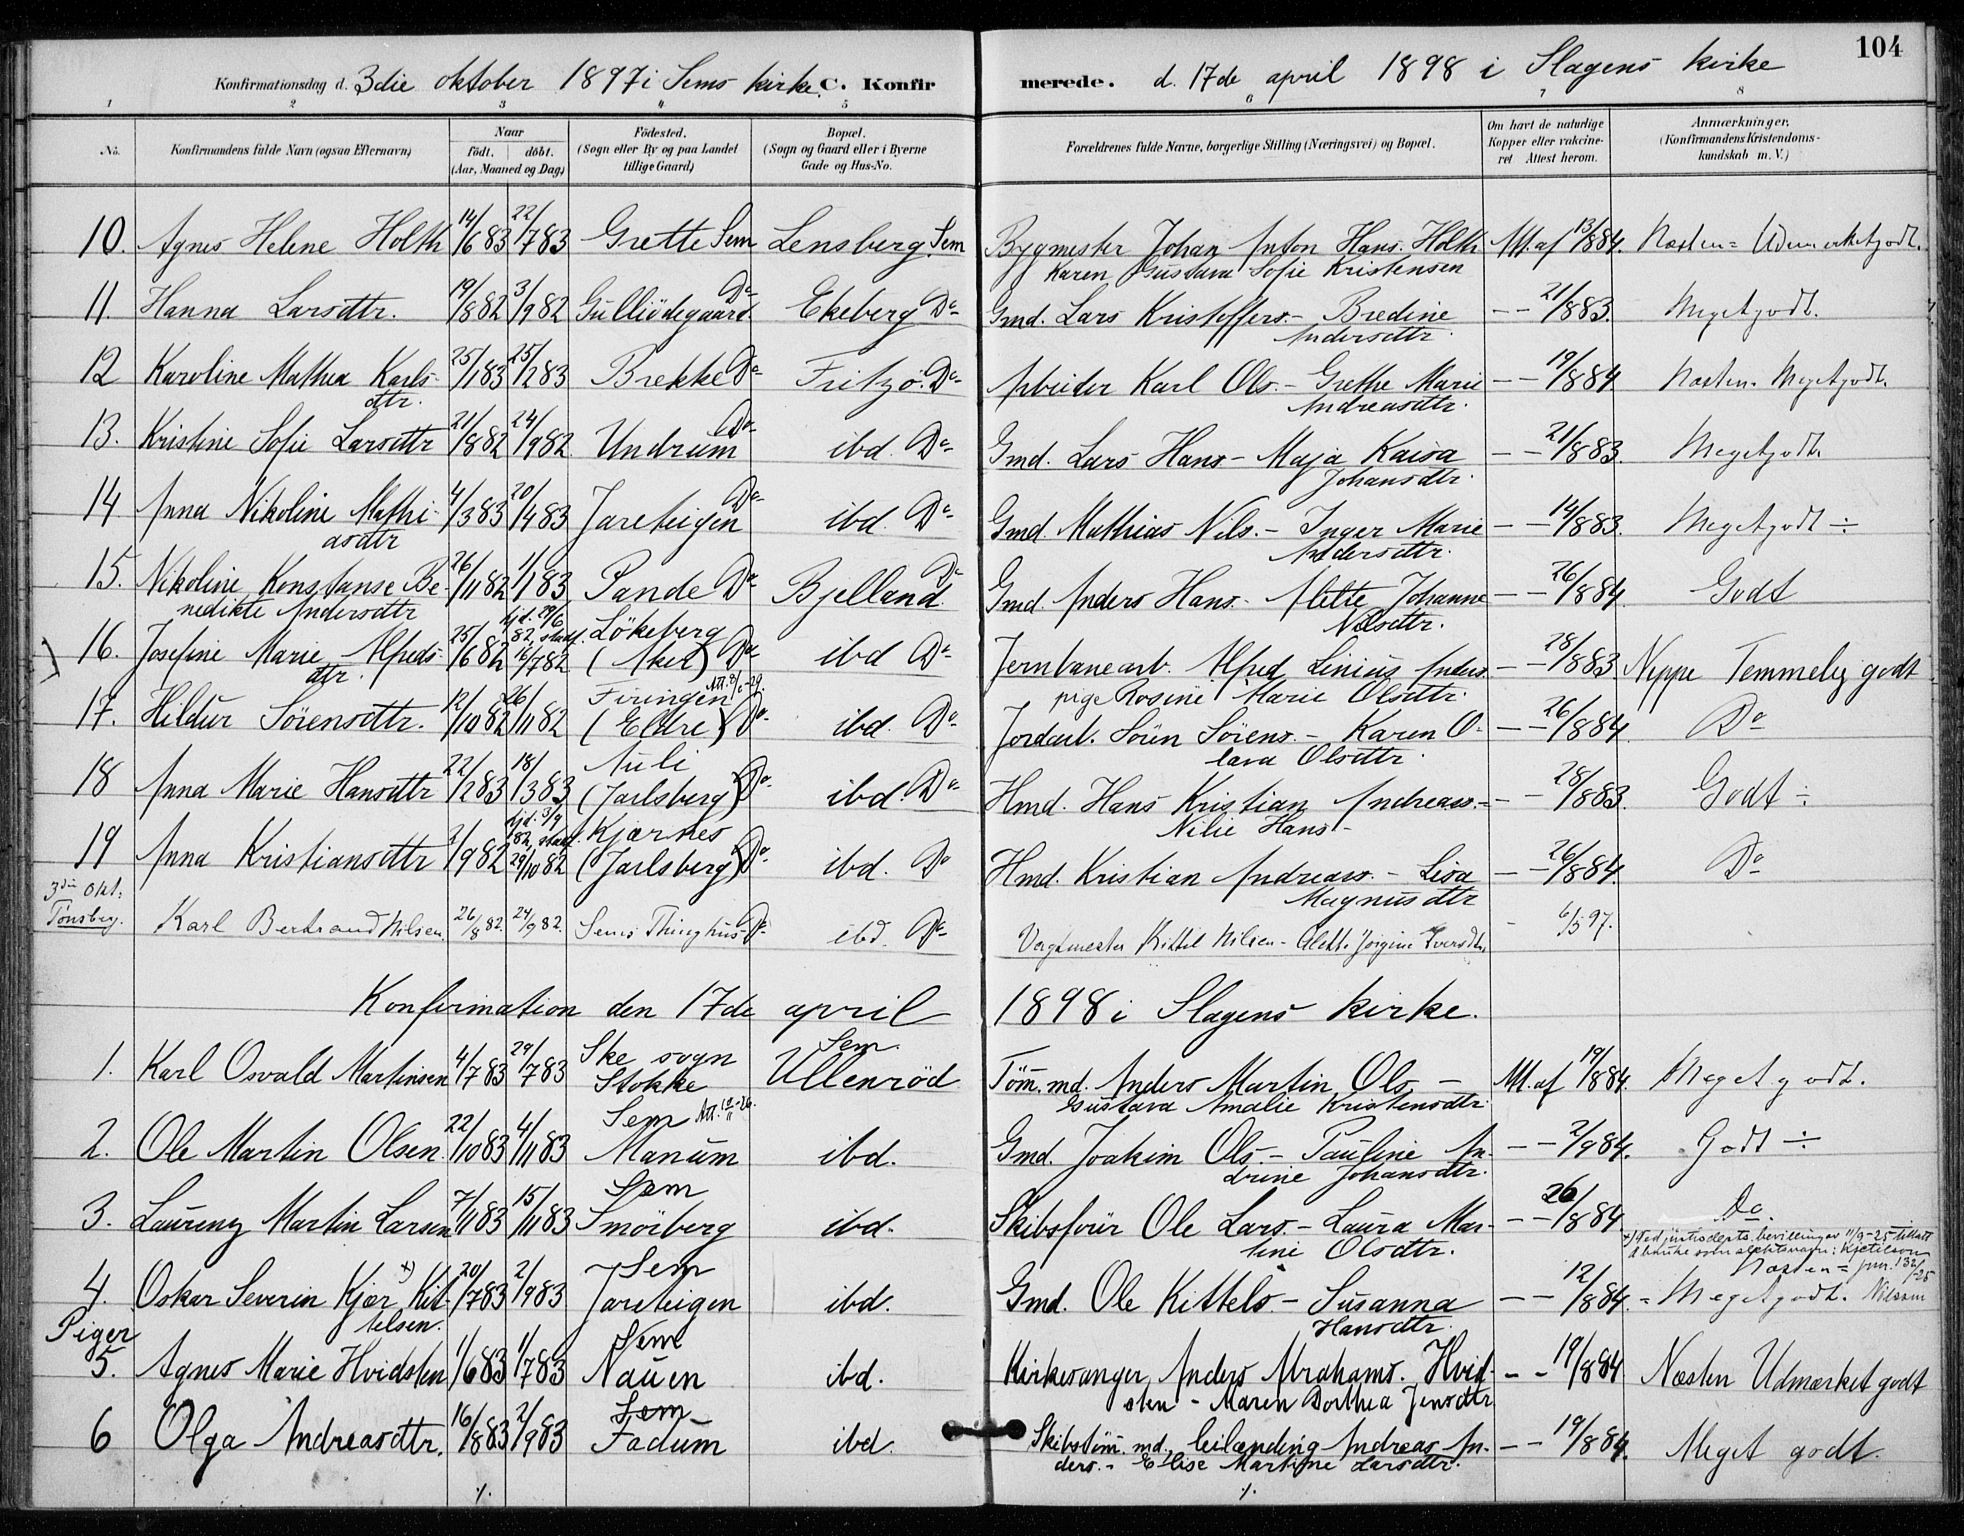 104
Konfirmationsdag d. 3die oktober 1897 i Sems kirke. C. Konfirmerede. d. 17de april 1898 i Slagens kirke
1 2 3 4 5 6 7 8
No. Konfirmandens fulde Navn (ogsaa Efternavn) Naar födt. döbt. (Aar, Maaned og Dag) Födested. (Sogn eller By og paa Landet tillige Gaard) Bopæl. (Sogn og Gaard eller i Byerne Gade og Hus-No. Forældrenes fulde Navne, borgerlige Stilling (Næringsvei) og Bopæl. Om havt de naturlige Kopper eller vakcineret Attest herom. Anmærkninger. (Konfirmandens Kristendomskundskab m. V.)
10. Agnes Helene Holth 14/6 83 22/7 83 Grette Sem Lensberg Sem Bygmester Johan Anton Hans. Holth Att. af 13/8 84. Næsten = Udmærketgodt.
Karen Gustava Sofie Kristensen
11. Hanna Larsdttr. 19/8 82 3/9 82 Gulliödegaard Do Ekeberg Do Gmd. Lars Kristoffers. - Bredine - - 21/8 83. Megetgodt.
Andersdttr.
12 Karoline Mathea Karls- 25/1 83 25/2 83 Brekke Do Fritzö. Do Arbeider Karl Ols. - Grethe Marie - - 19/8 84 Næsten. Megetgodt.
dtr. Andreasdtr.
13. Kristine Sofie Larsdttr 21/8 82 24/9 82 Undrum Do ibd. Do Gmd. Lars Hans - Maja Kaisa - - 21/8 83. Megetgodt.
Johansdtr.
14 Anna Nikoline Mathi- 4/3 83 20/4 83 Jareteigen Do ibd. Do Gmd. Mathias Nils. - Inger Marie - - 14/8 83. Megetgodt ÷
asdtr Andersdttr.
15. Nikoline Konstanse Be- 26/11 82 1/1 83 Pande Do Bjelland Do Gmd. Anders Hans. - Alette Johanne - - 26/8 84. Godt
nedikte Andersdttr Nilsdttr.
16. Josefine Marie Alfreds- 25/6 82 hjd. 29/6 82, stadf. 16/7 82 Lökeberg (Akel) Do ibd Do Jernbanearb. Alfred Linius Anders. - - 28/8 83 Neppe Temmelig godt
dtr. pige Rosine Marie Olsdttr.
17. Hildur Sörensdttr. 12/10 82 26/11 82 Firingen (Eldre) Do Att. ibd. Do Jordarb. Sören Sörens. - Karen O- - - 26/8 84. Do
lava Olsdttr.
18 Anna Marie Hansdttr 22/2 83 18/3 83 Auli (Jarlsberg) Do ibd. Do Hmd. Hans Kristian Andreass. - - 28/8 83. Godt ÷
Nilie Hans -
19 Anna Kristiansdttr 2/9 82 hjd. 3/9 82, stadf. 29/10 82 Kjærnes (Jarlsberg) Do ibd. Do Hmd. Kristian Andreass. - Lisa - - 26/8 84. Do
Magnusdtr
3die Okt: Tönsberg. Karl Bertrand Nilsen 26/8 82. 24/9 82. Sems Thinghus Do ibd. Do Vogtmester Kittil Nilsen - Alette Jörgine Iversdtr. - 6/5 97.
Konfirmation den 17de april 1898 i Slagens kirke.
1. Karl Osvald Martinsen 4/7 83 29/7 83 Ske sogn Stokke Sem. Ullenröd Töm. md. Anders Martin Ols. - Att. af 19/8 84. Meget godt.
Gustava Amalie Kristensdtr.
2. Ole Martin Olsen. 22/10 83 4/11 83 Sem Att. Manum ibd. Gmd. Joakim Ols. - Pauline An- - - 2/9 84. Godt ÷
drine Johansdtr.
3. Laurenz Martin Larsen 7/11 83 15/11 83 Sem Smörberg ibd. Skibsförer Ole Lars. - Laura Mar- - - 26/8 84. Do.
tine Olsdtr.
x) Ved justisdepts. bevilling av 11/9-25 tillatt å bruke som slektsnavn: Kjetilson
4. Oskar Severin Kjær x) Kit- 20/7 83 2/9 83 Sem Jareteigen ibd. Gmd. Ole Kittels - Susanna - - 12/8 84. Næsten = Megetgodt.
telsen. Hansdtr.
Piger
5. Agnes Marie Hvidsten 1/6 83 1/7 83 Sem Nauen ibd. Kirkesanger Anders Abrahams. Hvid- - - 19/8 84 Næsten Udmærket godt
sten - Maren Dorthea Jensdttr
6 Olga Andreasdttr. 16/8 83 2/9 83 Sem Fadum ibd. Skibstöm. md. leilænding Andreas An- - - 19/8 84. Meget godt.
ders. - Elise Martine Larsdttr.